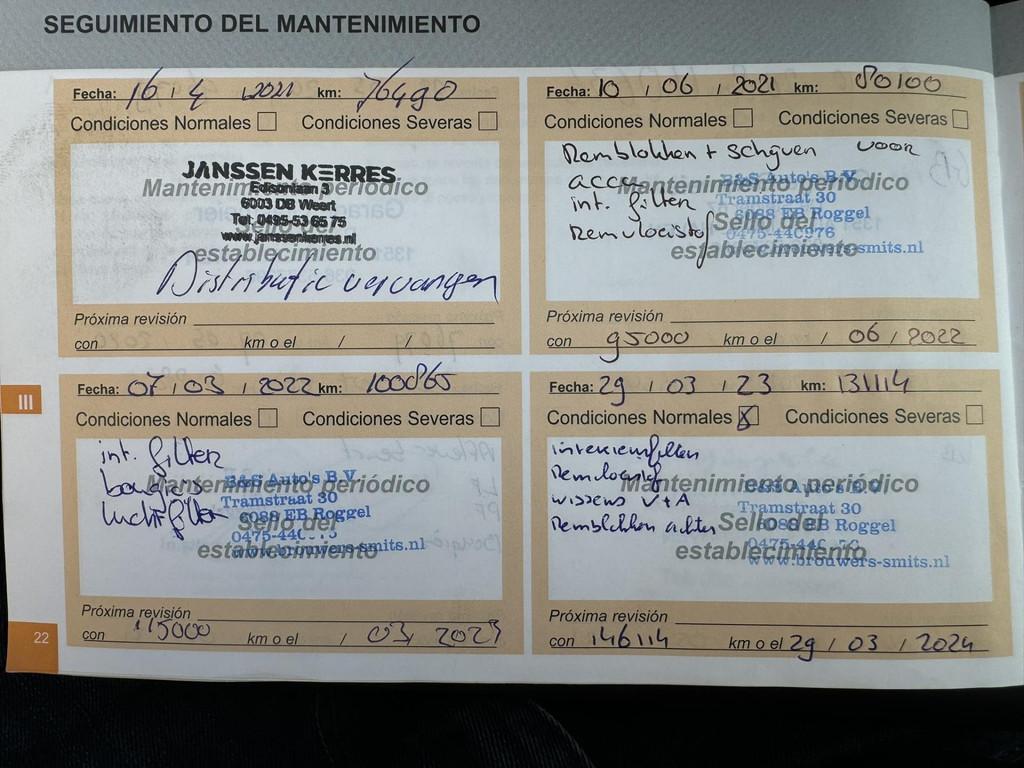 SEGUIMIENTO DEL MANTENIMIENTO
Fecha: 16 / 4 / 2021 km: 76490
Condiciones Normales Condiciones Severas
JANSSEN KERRES
Mantenimiento periódico
Edisonlaan 3
6003 DB Weert
Tel: 0495-53 65 75
Sello del
www.janssenkerres.nl
establecimiento
Distributie vervangen
Próxima revisión
con km o el / /
Fecha: 10 / 06 / 2021 km: 80100
Condiciones Normales Condiciones Severas
Remblokken + schijven voor
accu
B&S Auto's B.V.
Mantenimiento periódico
int. filter
Tramstraat 30
6088 EB Roggel
Sello del
Remvloeistof
0475-440976
establecimiento
www.brouwers-smits.nl
Próxima revisión
con 95000 km o el / 06 / 2022
III
Fecha: 07 / 03 / 2022 km: 100865
Condiciones Normales Condiciones Severas
int. filter
B&S Auto's B.V.
bougies
Mantenimiento periódico
Tramstraat 30
luchtfilter
6088 EB Roggel
Sello del
0475-44
establecimiento
www.brouwers-smits.nl
Próxima revisión
con 115000 km o el / 03 / 2023
Fecha: 29 / 03 / 23 km: 131114
Condiciones Normales X Condiciones Severas
interieurfilter
Remvloeistof
Mantenimiento periódico
wissers V+A
Tramstraat 30
Remblokken achter
6088 EB Roggel
Sello del
0475-440
establecimiento
www.brouwers-smits.nl
Próxima revisión
con 146114 km o el 29 / 03 / 2024
22